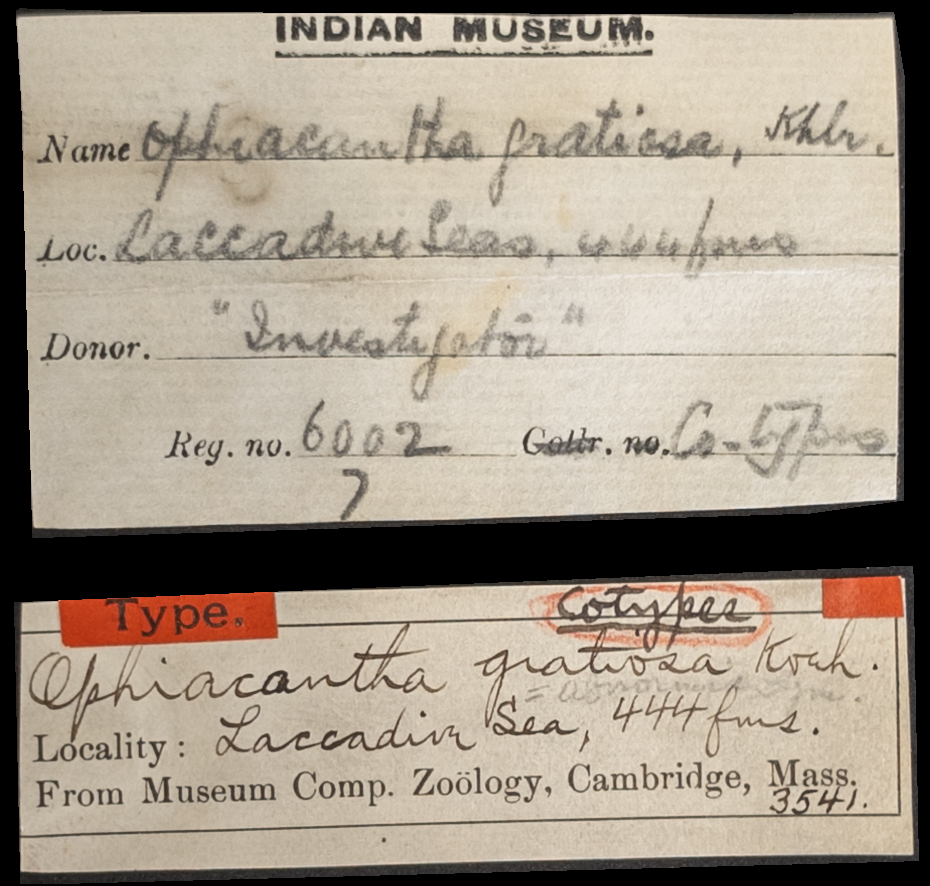 INDIAN MUSEUM.
Name Ophiacantha gratiosa, Khlr.
Loc. Laccadive Seas, 444 fms
Donor. "Investigator"
Reg. no. 6002 Collr. no. Co-types
7
Type. Cotypes
Ophiacantha gratiosa Koeh.
=
Locality : Laccadive Sea, 444 fms.
From Museum Comp. Zoölogy, Cambridge, Mass.
3541.